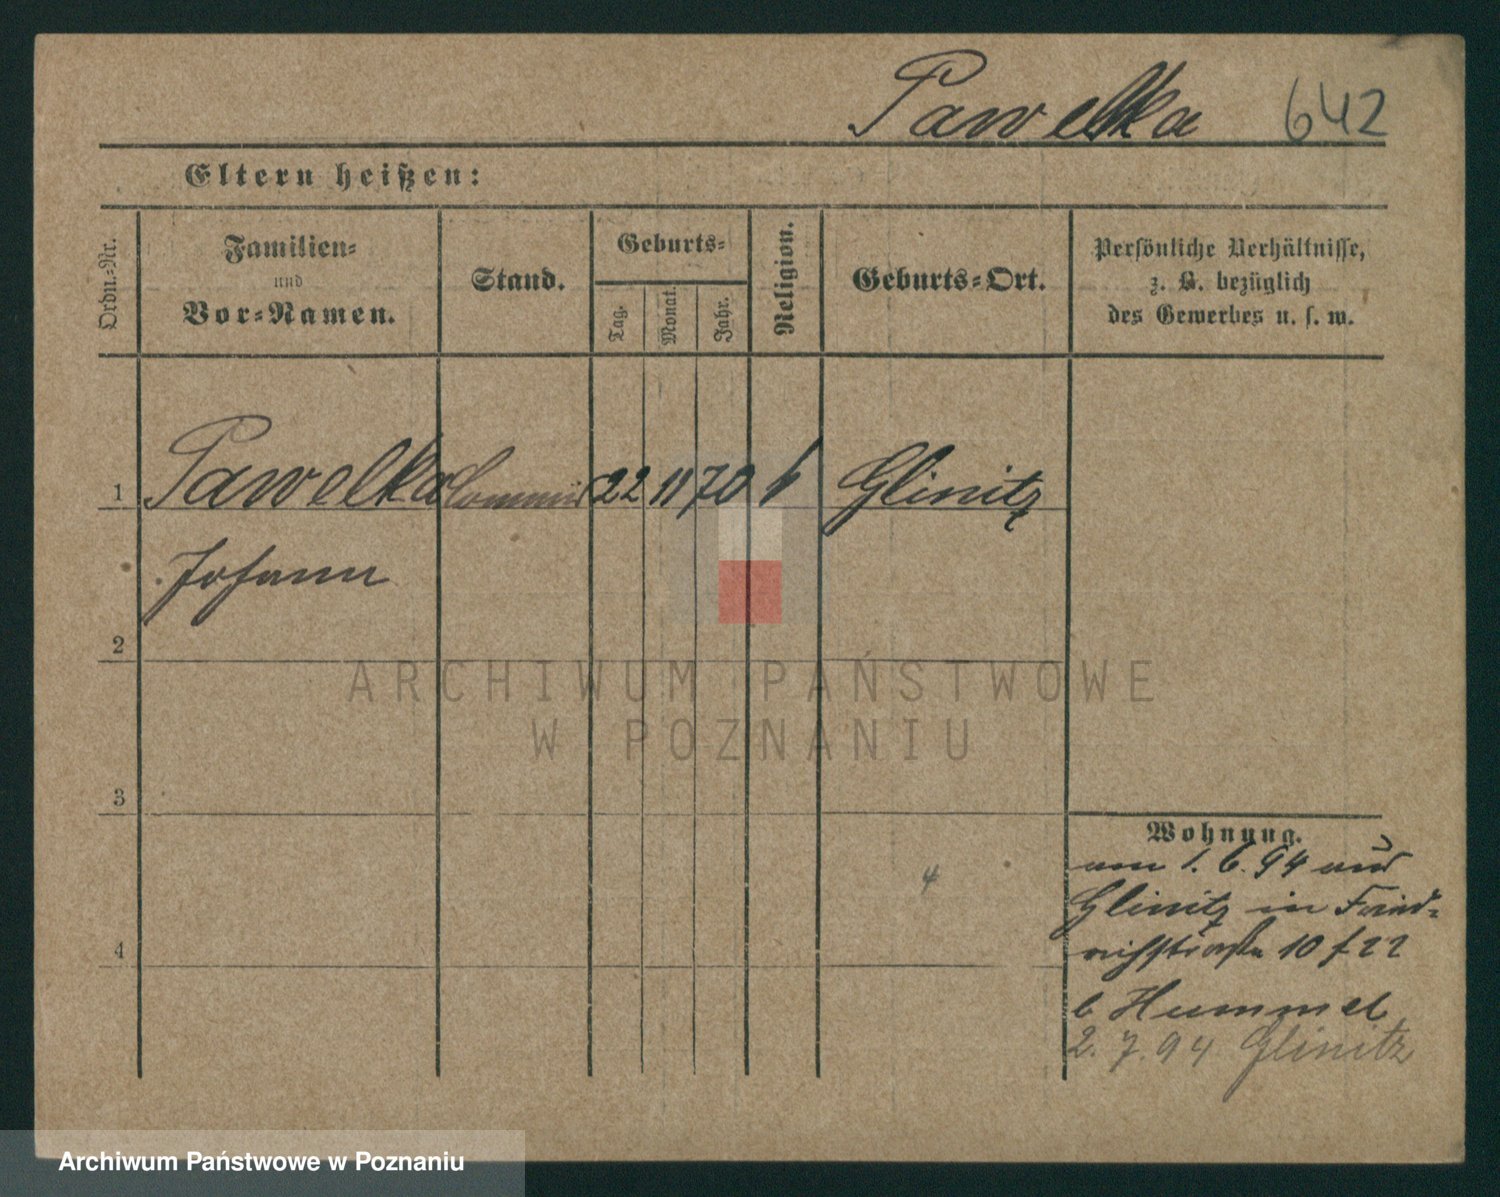 Pawelka 642
Eltern heißen:
Ordn.-Nr.
Familien-
und
Vor-Namen.
Stand.
Geburts-
Tag.
Monat.
Jahr.
Religion.
Geburts-Ort.
Persönliche Verhältnisse,
z. B. bezüglich
des Gewerbes u. s. w.
1 Pawelka Commis 22 11 70 k Glinitz
Johann
2
3
4
4
Wohnung.
am 1. 6. 94 aus
Glinitz in Fried-
richstraße 10 f 22
b Hummel
2. 7. 94 Glinitz
ARCHIWUM PAŃSTWOWE
W POZNANIU
Archiwum Państwowe w Poznaniu